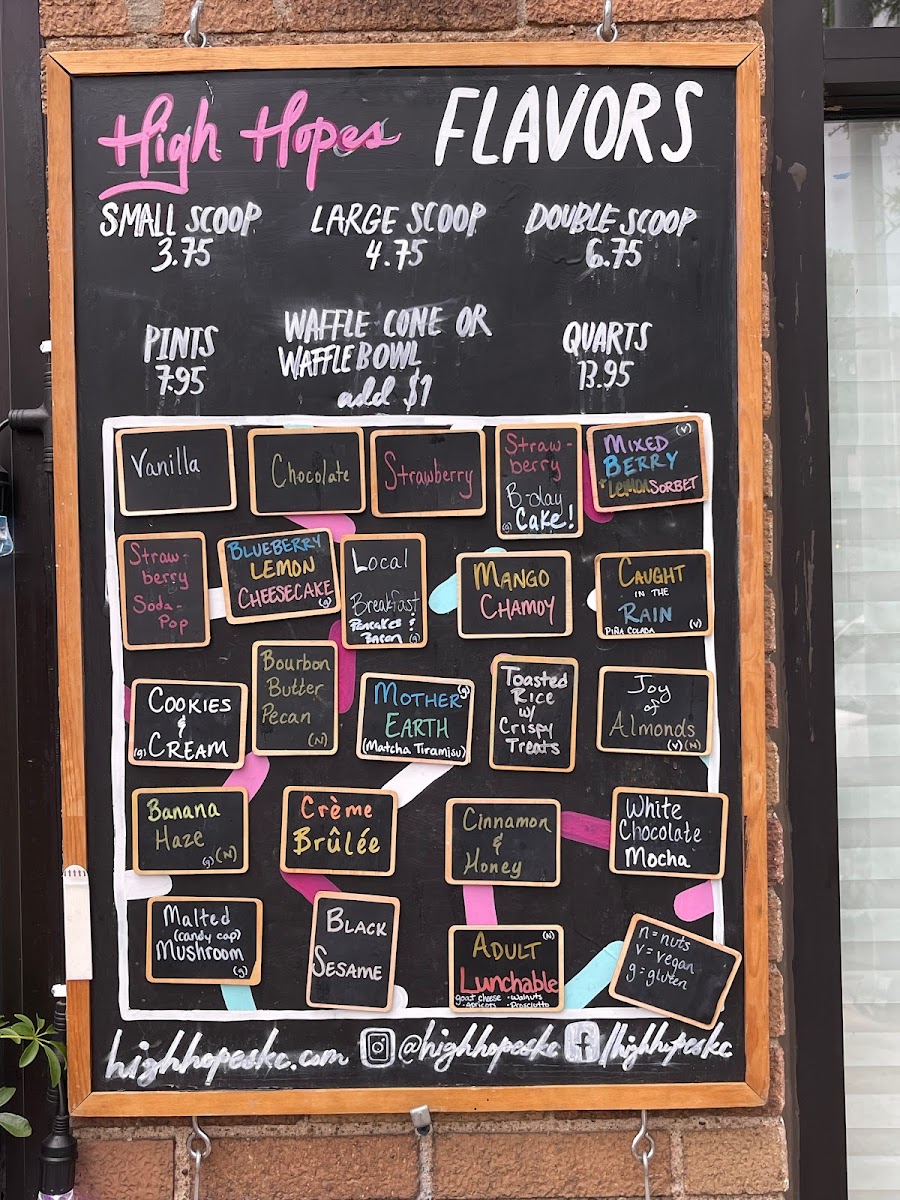 High Hopes FLAVORS
SMALL SCOOP
3.75
LARGE SCOOP
4.75
DOUBLE SCOOP
6.75
PINTS
7.95
WAFFLE CONE OR
WAFFLE BOWL
add $1
QUARTS
13.95
Vanilla
Chocolate
Strawberry
Straw-
berry
B-day
Cake!
(g)
MIXED (V)
BERRY
+ LEMON SORBET
Straw-
berry
Soda-
Pop
BLUEBERRY
LEMON
CHEESECAKE
(g)
Local
Breakfast
Pancakes &
Bacon (g)
MANGO
CHAMOY
CAUGHT
IN THE
RAIN
PIÑA COLADA (V)
COOKIES
&
(g) CREAM
Bourbon
Butter
Pecan
(N)
MOTHER (g)
EARTH
(Matcha Tiramisu)
Toasted
Rice
w/
Crispy
Treats
Joy
of
Almonds
(V) (N)
Banana
Haze
(g) (N)
Crème
Brûlée
Cinnamon
&
Honey
White
Chocolate
Mocha
Malted
(candy cap)
Mushroom
(g)
BLACK
SESAME
ADULT (N)
Lunchable
goat cheese • Walnuts
• Apricots • Prosciutto
n = nuts
v = vegan
g = gluten
highhopeskc.com @highhopeskc f/highhopeskc